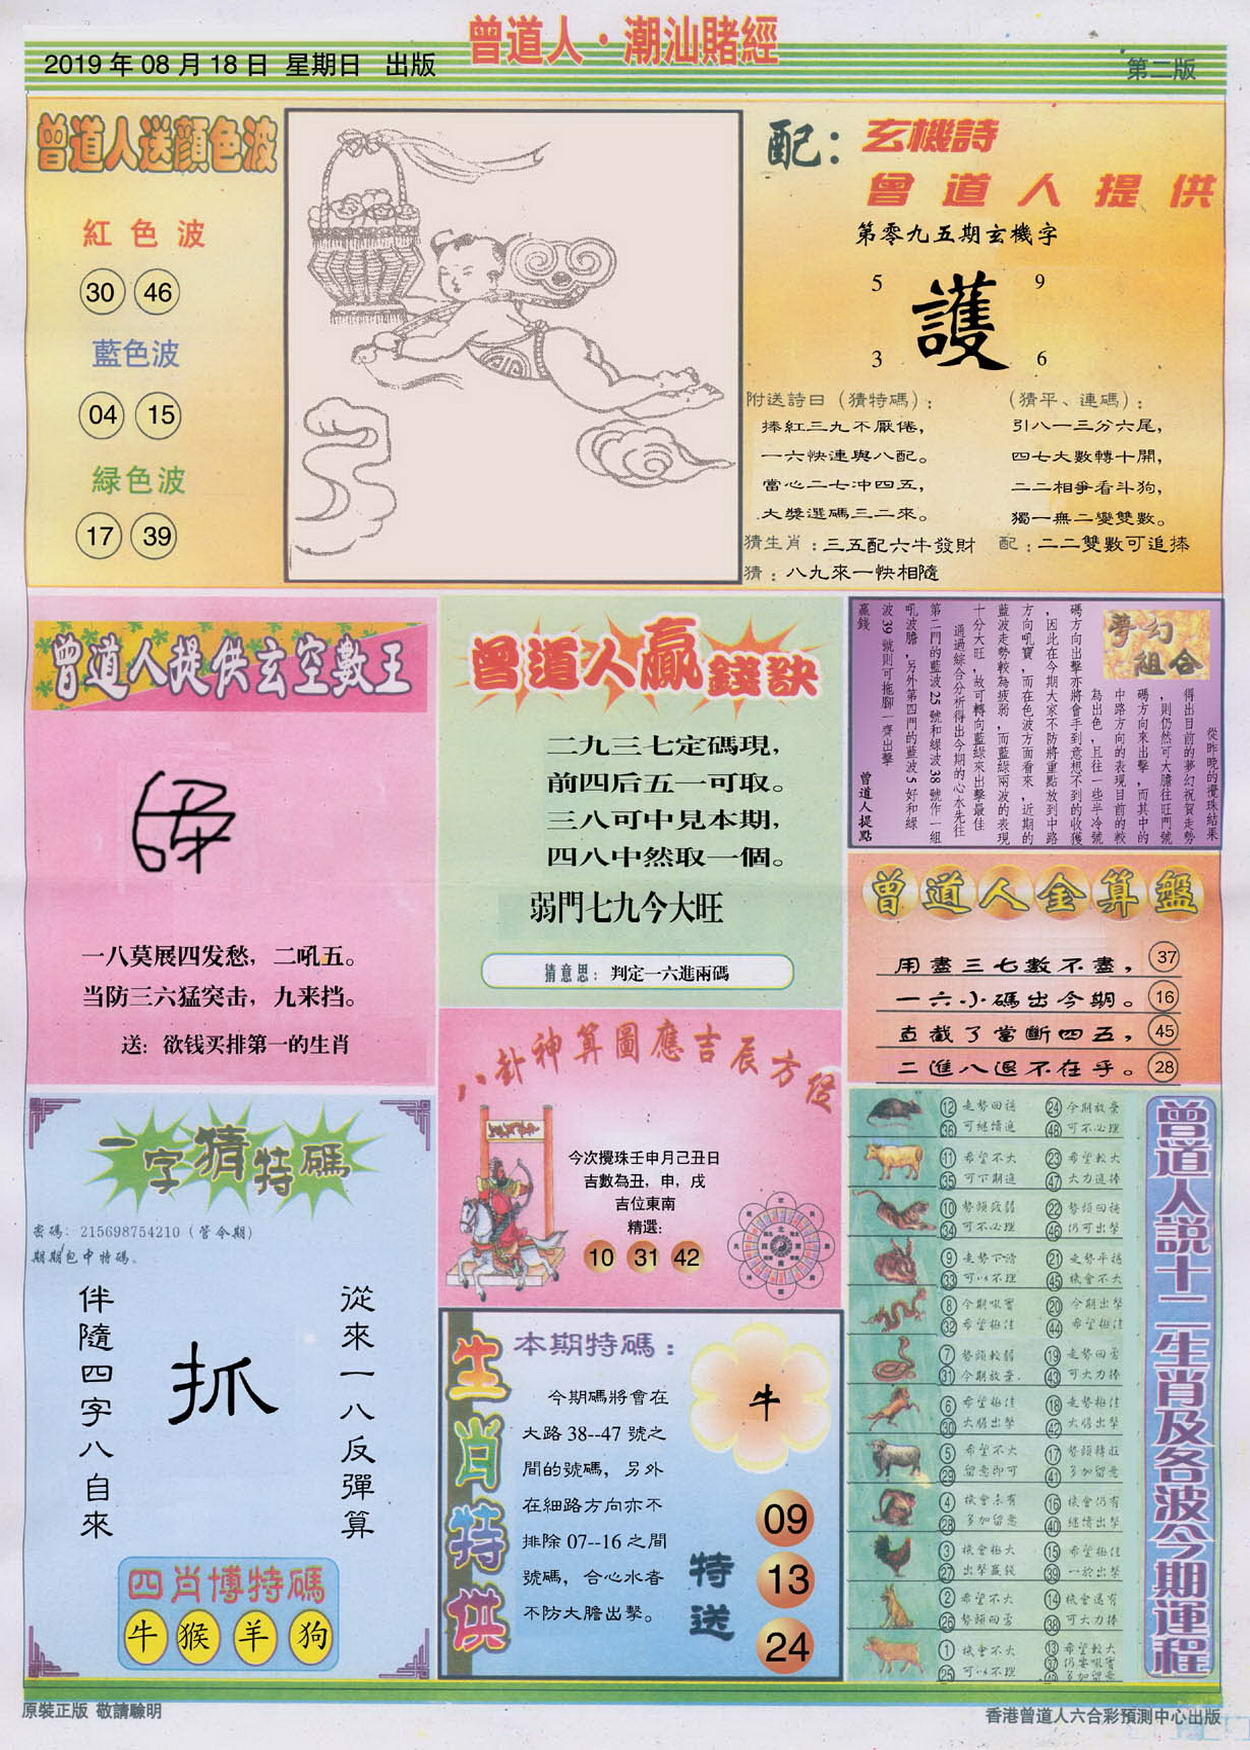 曾道人·潮汕賭經
2019年08月18日 星期日 出版
第二版
曾道人送顔色波
紅色波
30 46
藍色波
04 15
緑色波
17 39
配：玄機詩
曾道人提供
第零九五期玄機字
5 9
護
3 6
附送詩曰（猜特碼）：
捧紅三九不厭倦，
一六快連與八配。
當心二七冲四五，
大獎選碼三二來。
（猜平、連碼）：
引八一三分六尾，
四七大數轉十開，
二二相爭看斗狗，
獨一無二變雙數。
猜生肖：三五配六牛發財
配：二二雙數可追捧
猜：八九來一快相隨
曾道人提供玄空數王
一八莫展四发愁，二吼五。
当防三六猛突击，九来挡。
送：欲钱买排第一的生肖
曾道人贏錢訣
二九三七定碼現，
前四后五一可取。
三八可中見本期，
四八中然取一個。
弱門七九今大旺
猜意思：判定一六進兩碼
夢幻組合
從昨晚的攪珠結果
得出目前的夢幻祝賀走勢
，則仍然可大膽往旺門號
碼方向來出擊，而其中的
中路方向的表現目前的較
為出色，且往一些半冷號
碼方向出擊亦將會手到意想不到的收獲
，因此在今期大家不防將重點放到中路
方向吼寶，而在色波方面看來，近期的
藍波走勢較為疲弱，而藍綠兩波的表現
十分大旺，故可轉向藍綠來出擊最佳
通過綜合分析得出今期的心水先往
第二門的藍波25號和綠波38號作一組
吼波膽，另外第四門的藍波5好和綠
波39號則可拖腳一齊出擊
贏錢
曾道人提點
曾道人金算盤
用盡三七數不盡，37
一六小碼出今期。16
直截了當斷四五，45
二進八退不在乎。28
一字猜特碼
密碼：215698754210（管今期）
期期包中特碼。
從來一八反彈算
抓
伴隨四字八自來
四肖博特碼
牛 猴 羊 狗
八卦神算圖應吉辰方位
今次攪珠壬申月己丑日
吉數為丑，申，戌
吉位東南
精選：
10 31 42
生肖特供
本期特碼：
今期碼將會在
大路38--47號之
間的號碼，另外
在細路方向亦不
排除07--16之間
號碼，合心水者
不防大膽出擊。
牛
特送
09
13
24
曾道人説十二生肖及各波今期運程
12 走勢回穩 24 今期放棄
36 可繼續追 48 可不必理
11 希望不大 23 希望較大
35 可下期追 47 大力追捧
10 勢頭疲弱 22 勢頭回穩
34 可不必理 46 仍可出擊
9 走勢下滑 21 走勢平穩
33 可以不理 45 機會不大
8 今期吼實 20 今期出擊
32 希望極佳 44 希望極佳
7 勢頭較弱 19 走勢回勇
31 今期放棄. 43 可大力捧
6 希望極佳 18 走勢極佳
30 大膽出擊 42 大膽出擊
5 希望不大 17 勢頭轉旺
29 留意即可 41 多加留意
4 機會未有 16 機會仍有
28 多加留意 40 繼續出擊
3 機會極大 15 希望極佳
27 出擊贏錢 39 一於出擊
2 希望不大 14 機會還有
26 勢頭回勇 38 可大力捧
1 機會不大 13 希望較大
25 可以不理 37 仍要吼實
多加留意
原裝正版 敬請驗明
香港曾道人六合彩預測中心出版